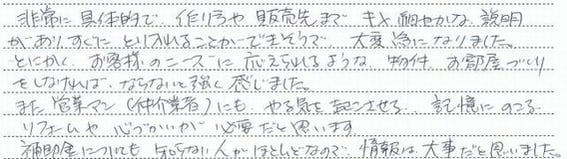 非常に具体的で、作り方や販売先まで、キメ細やかな説明
がありすぐにとり入れることができそうで、大変為になりました。
とにかく、お客様のニーズに応えられるような、物件、お部屋づくり
をしなければ、ならないと強く感じました。
また営業マン(仲介業者)にも、やる気を起こさせる、記憶にのこる
リフォームや心づかいが必要だと思います
補助金についても知らない人がほとんどなので、情報は大事だと思いました。